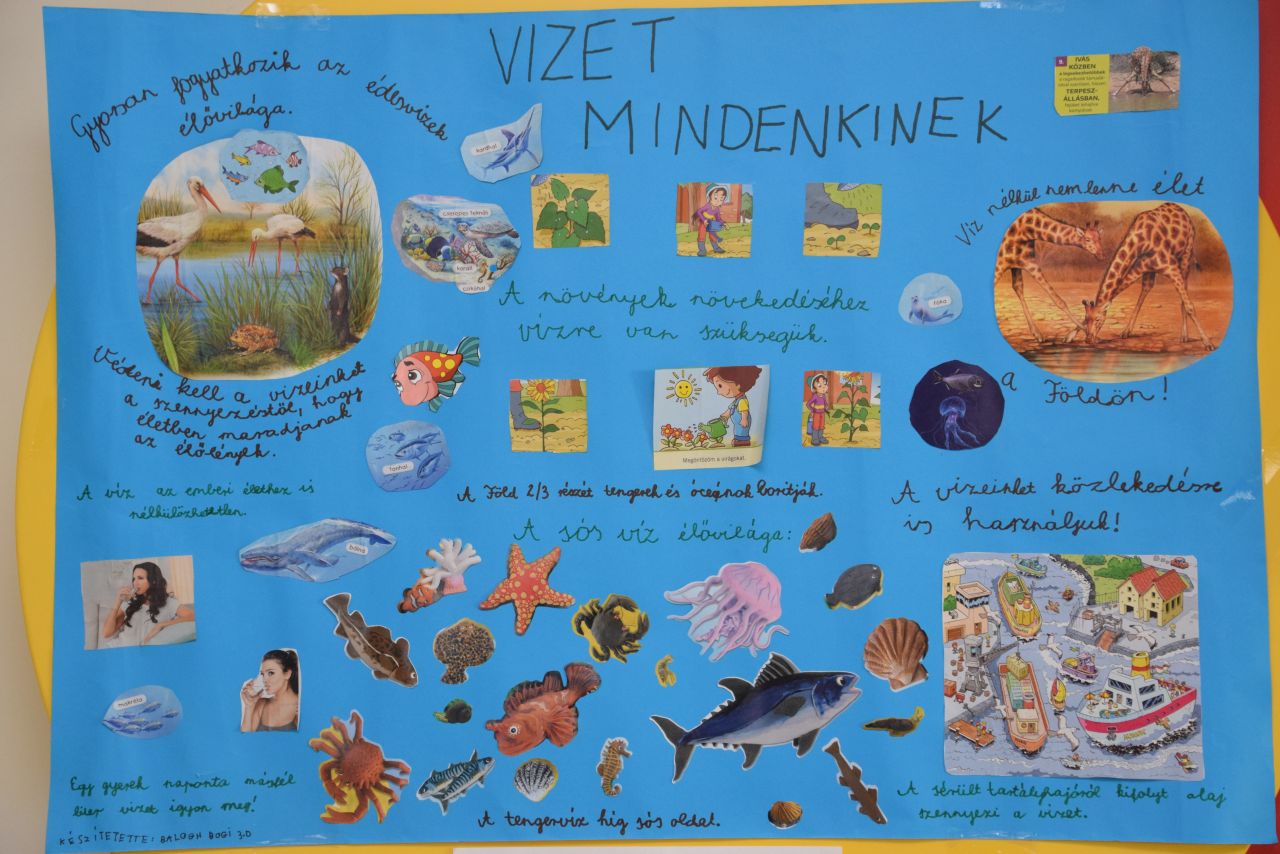 VIZET
MINDENKINEK
Gyorsan fogyatkozik az édesvizek
élővilága.
kardhal
9. IVÁS
KÖZBEN
a legsebezhetőbbek
TERPESZ-
ÁLLÁSBAN,
cserepes teknős
korall
csikóhal
Víz nélkül nem lenne élet
a Földön!
fóka
A növények növekedéséhez
vízre van szükségük.
Védeni kell a vizeinket
a szennyezéstől, hogy
életben maradjanak
az élőlények.
tonhal
Megöntözöm a virágokat.
A víz az emberi élethez is
nélkülözhetetlen.
A Föld 2/3 részét tengerek és óceánok borítják.
A vizeinket közlekedésre
is használjuk!
A sós víz élővilága:
bálna
makréla
Egy gyerek naponta másfél
liter vizet igyon meg!
A tengervíz híg sós oldat.
A sérült tartályhajóról kifolyt olaj
szennyezi a vizet.
KÉSZÍTETETTE: BALOGH BOGI 3.D